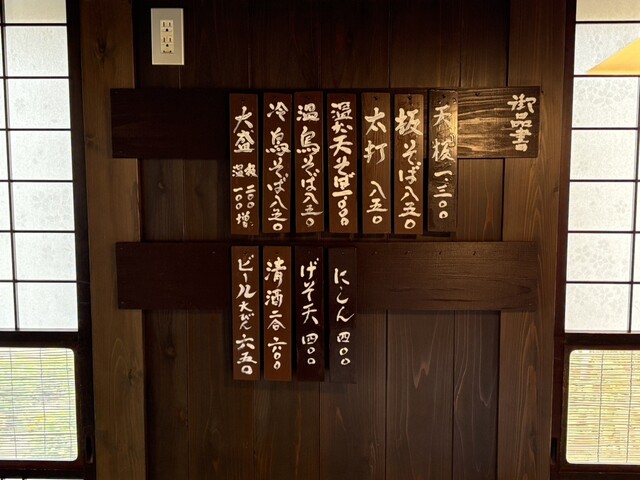 御品書
天板 一、三〇〇
板そば 八五〇
太打 八五〇
温だい天そば 一〇〇〇
温鳥そば 八五〇
冷鳥そば 八五〇
大盛 板 二〇〇 温 一〇〇 増
にしん 四〇〇
げそ天 四〇〇
清酒 二合 六〇〇
ビール 大びん 六五〇